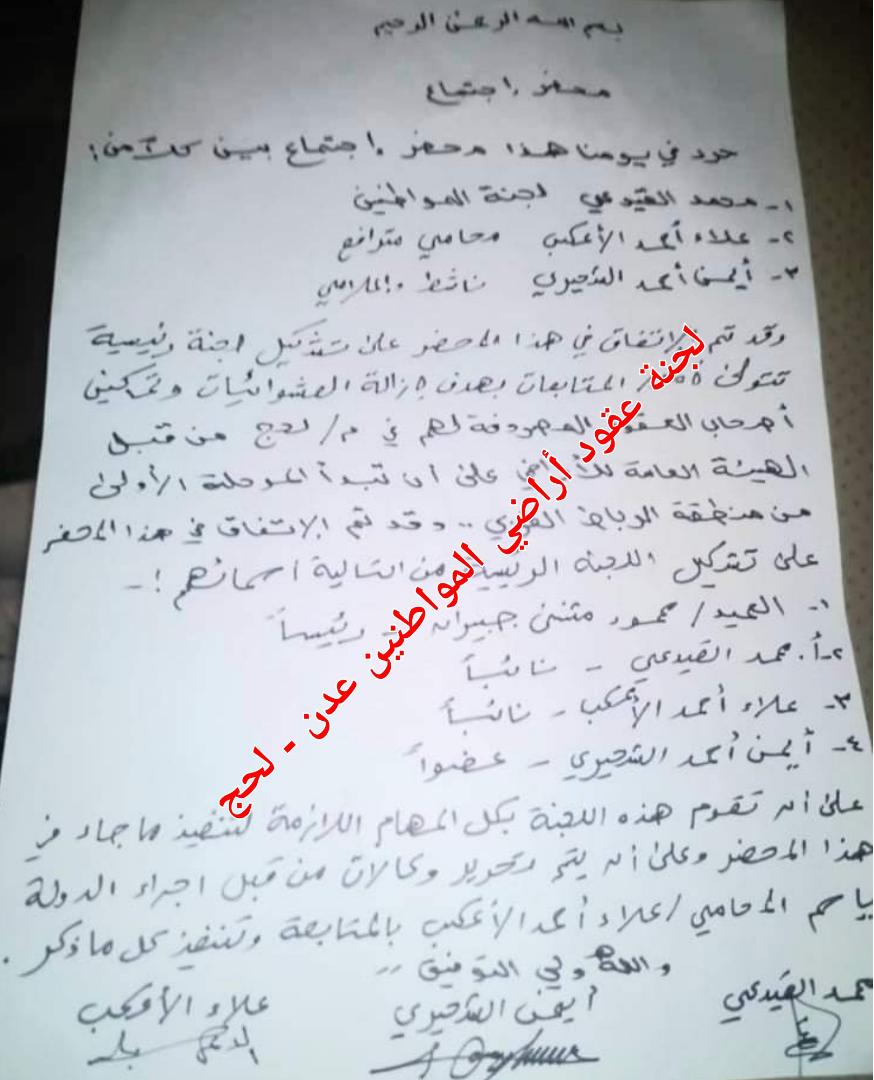 بسم الله الرحمن الرحيم
محضر اجتماع
حرر في يومنا هذا محضر اجتماع بين كلاً من:
١- محمد القيدعي لجنة المواطنين
٢- علاء أحمد الأعكب محامي مترافع
٣- أيمن أحمد الشحيري ناشط وإعلامي
وقد تم الاتفاق في هذا المحضر على تشكيل لجنة رئيسية
تتولى المتابعات بهدف إزالة العشوائيات وتمكين
أصحاب العقود المصروفة لهم في م/ لحج من قبل
الهيئة العامة للأراضي على أن تبدأ المرحلة الأولى
من منطقة الرباط الغربي .. وقد تم الإتفاق في هذا المحضر
على تشكيل اللجنة الرئيسية من التالية أسمائهم :-
١- العميد/ محمود مثنى جبران - رئيساً
٢- أ. محمد القيدعي - نائباً
٣- علاء أحمد الأعكب - نائباً
٤- أيمن أحمد الشحيري - عضواً
على أن تقوم هذه اللجنة بكل المهام اللازمة لتنفيذ ما جاء في
هذا المحضر وعلى أن يتم تحرير وكالات من قبل اجراء الدولة
باسم المحامي /علاء أحمد الأعكب بالمتابعة وتنفيذ كل ما ذكر .
والله ولي التوفيق ,,
محمد القيدعي أيمن الشحيري علاء الأعكب
لجنة عقود أراضي المواطنين عدن - لحج